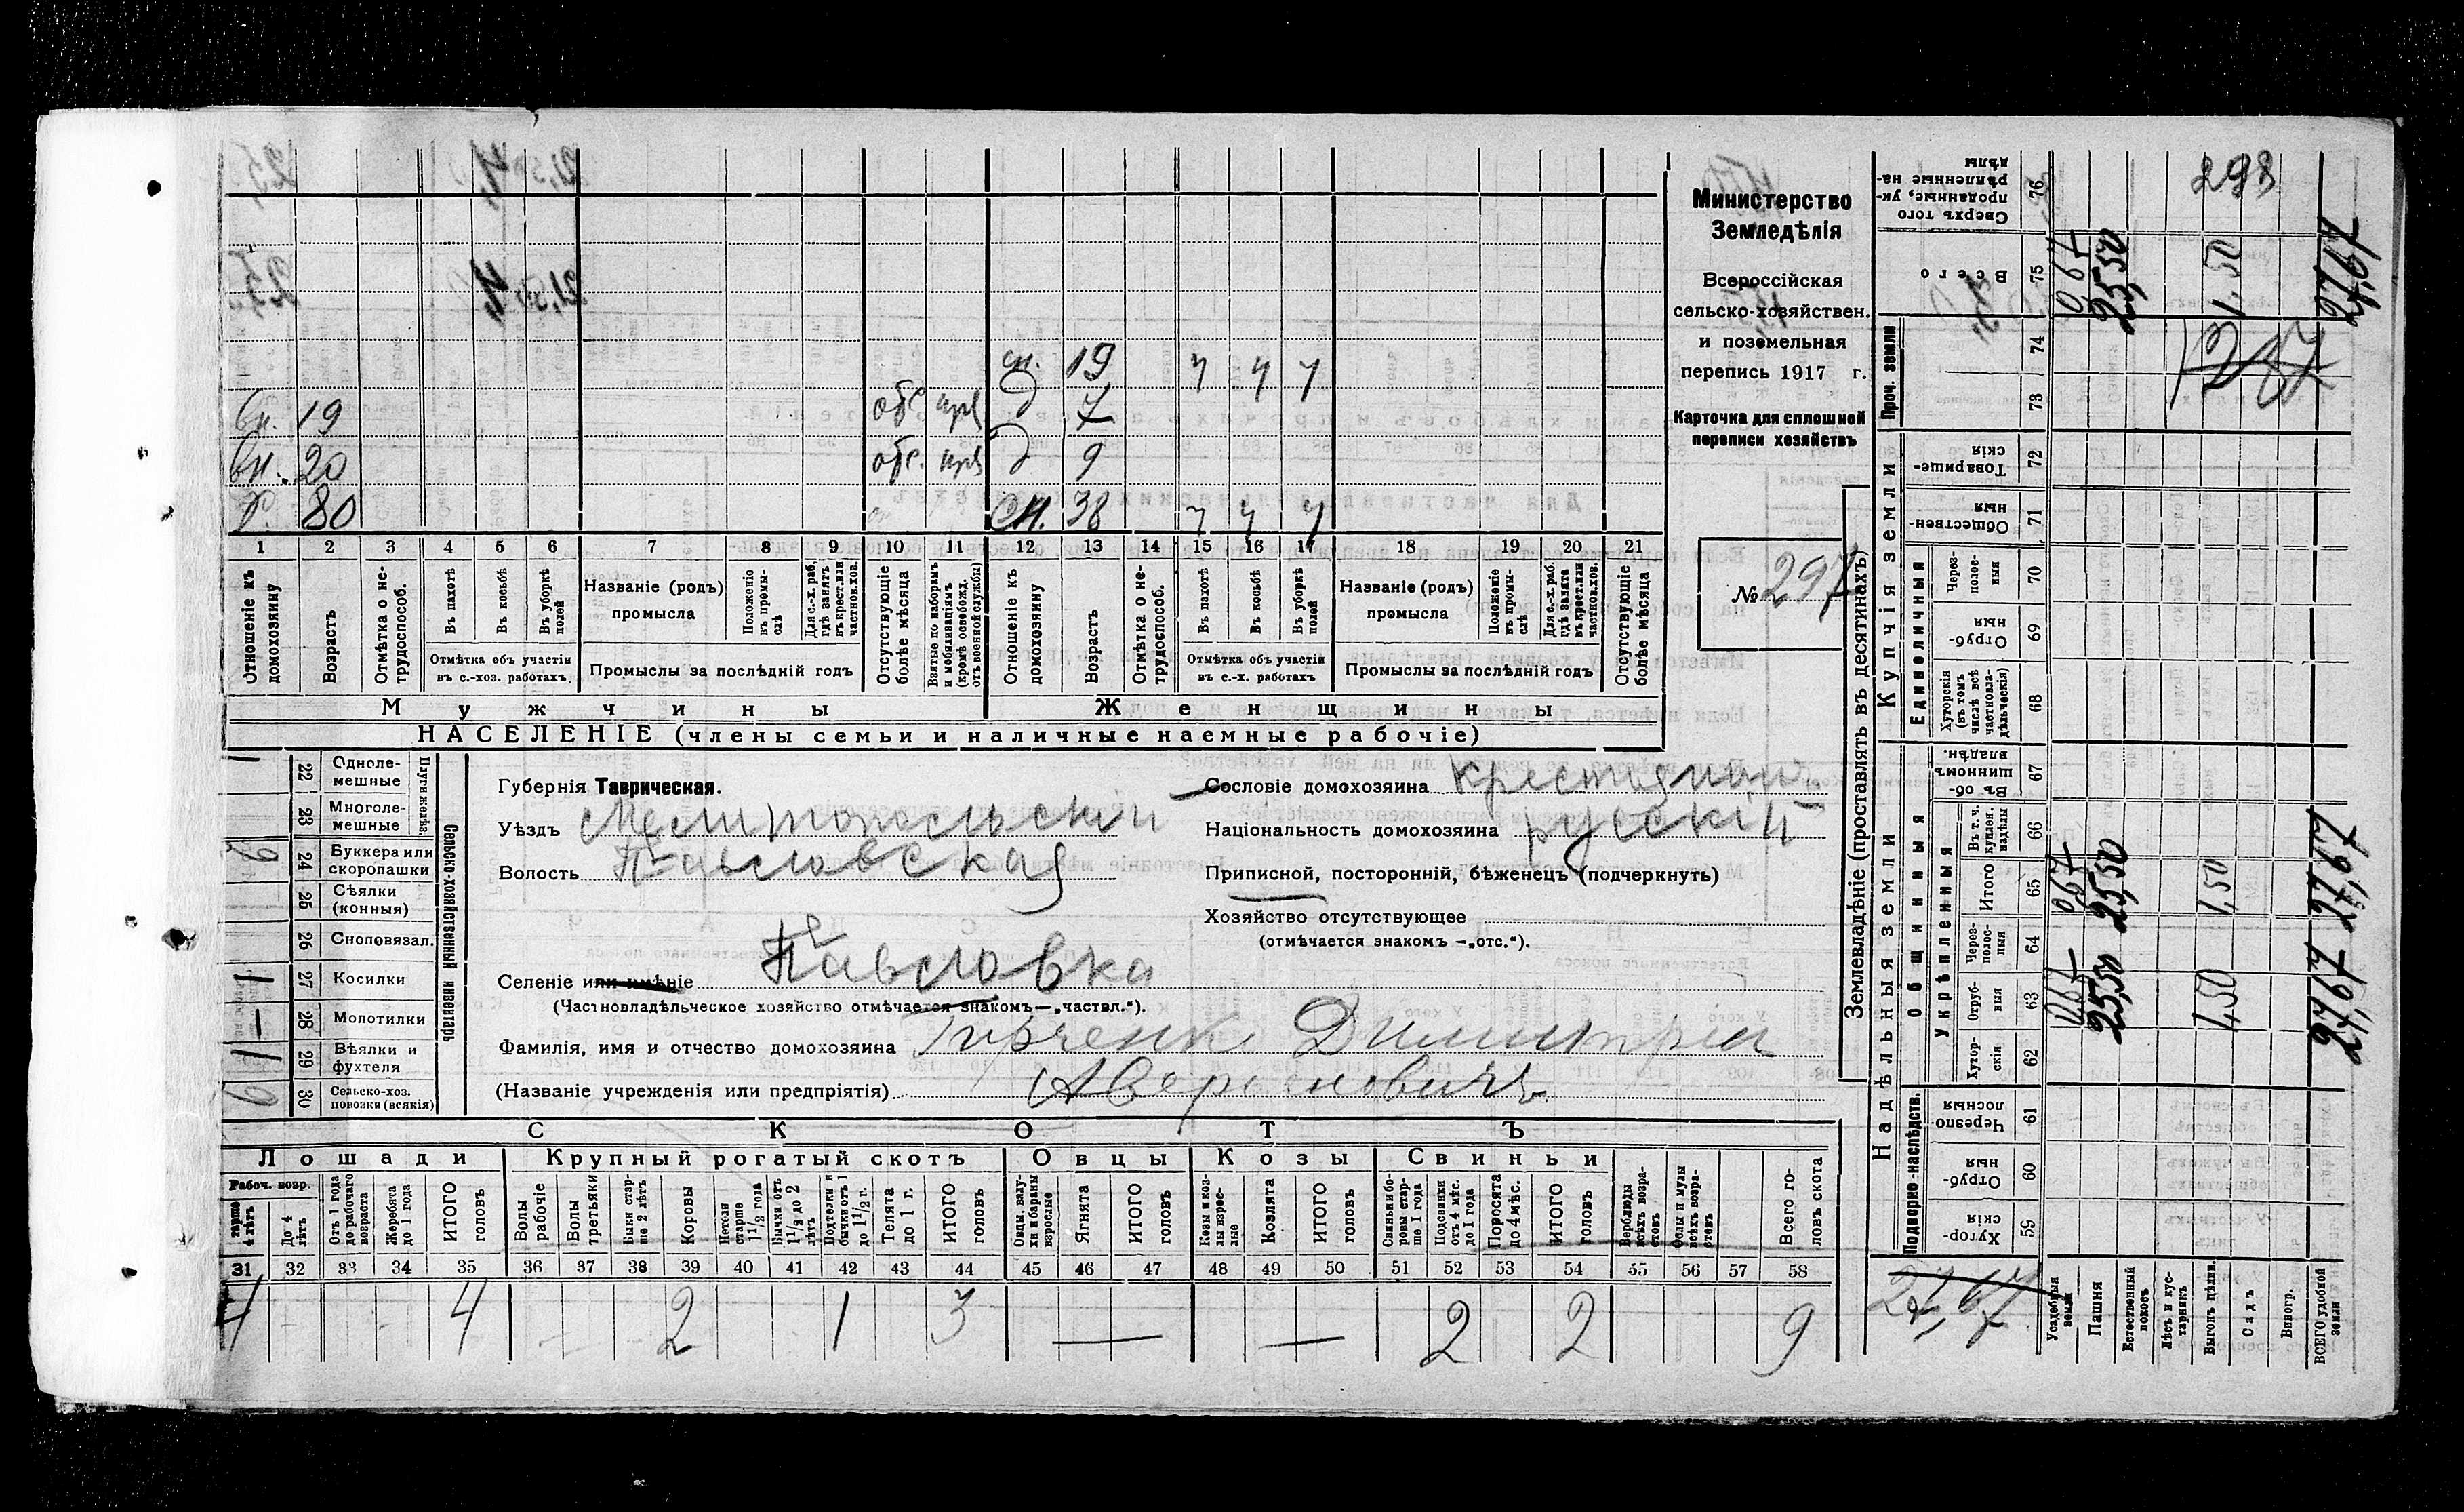 298
Министерство
Земледѣлія
Всероссійская
сельско-хозяйствен.
и поземельная
перепись 1917 г.
Карточка для сплошной
переписи хозяйствъ
№ 297
сн. 19 ч ч ч
вн. 19 отс. д 7
вн. 20 отс. д 9
80 сн. 38 ч ч ч
1 2 3 4 5 6 7 8 9 10 11 12 13 14 15 16 17 18 19 20 21
Отношеніе къ домохозяину
Возрастъ
Отмѣтка о нетрудоспособ.
Въ пахотѣ
Въ косьбѣ
Въ уборкѣ полей
Отмѣтка объ участіи въ с.-хоз. работахъ.
Названіе (родъ) промысла
Положеніе въ промыслѣ
Для с.-х. раб. гдѣ занятъ въ крест. или частнов. хоз.
Промыслы за послѣдній годъ
Отсутствующіе болѣе мѣсяца
Взятые по наборамъ и мобилизаціямъ (кромѣ освобожд. отъ военной службы)
Отношеніе къ домохозяину
Возрастъ
Отмѣтка о нетрудоспособ.
Въ пахотѣ
Въ косьбѣ
Въ уборкѣ полей
Отмѣтка объ участіи въ с.-х. работахъ
Названіе (родъ) промысла
Положеніе въ промыслѣ
Для с.-х. раб. гдѣ занята въ крест. или частнов. хоз.
Промыслы за послѣдній годъ
Отсутствующіе болѣе мѣсяца
Мужчины Женщины
НАСЕЛЕНІЕ (члены семьи и наличные наемные рабочіе)
Губернія Таврическая.
Уѣздъ Мелитопольскій
Волость Павловская
Селеніе или имѣніе Павловка
(Частновладѣльческое хозяйство отмѣчается знакомъ—„частвл.“).
Фамилія, имя и отчество домохозяина Димитрій
(Названіе учрежденія или предпріятія)
Сословіе домохозяина крестьянин
Національность домохозяина русскій
Приписной, посторонній, бѣженецъ (подчеркнуть)
Хозяйство отсутствующее
(отмѣчается знакомъ —„отс.“).
Сельско-хозяйственный инвентарь
Плуги желѣз.
22 Однолемешные 1
23 Многолемешные
24 Буккера или скоропашки
25 Сѣялки (конныя)
26 Сноповязал.
27 Косилки 1
28 Молотилки —
29 Вѣялки и фухтеля 1
30 Сельско-хоз. повозки (всякія)
СКОТЪ
Лошади Крупный рогатый скотъ Овцы Козы Свиньи
Рабоч. возр.
старше 4 лѣтъ
До 4 лѣтъ
Отъ 1 года до рабочаго возраста
Жеребята до 1 года
ИТОГО головъ
Волы рабочіе
Волы третьяки
Быки старше 2 лѣтъ
Коровы
Нетели старше 1 1/2 года
Бычки отъ 1 1/2 до 2 лѣтъ
Подтелки и бычки отъ 1 до 1 1/2 г.
Телята до 1 г.
ИТОГО головъ
Овцы, валухи и бараны взрослые
Ягнята
ИТОГО головъ
Козы и козлы взрослые
Козлята
ИТОГО головъ
Свиньи и боровы старше 1 года
Подсвинки отъ 4 мѣс. до 1 года
Поросята до 4 мѣс.
ИТОГО головъ
Верблюды всѣхъ возрастовъ
Ослы и мулы всѣхъ возрастовъ
Всего головъ скота
31 32 33 34 35 36 37 38 39 40 41 42 43 44 45 46 47 48 49 50 51 52 53 54 55 56 57 58
4 4 2 1 3 — — 2 2 9
Землевладѣніе (проставлять въ десятинахъ)
Надѣльныя земли Купчія земли Проч. земли
Подворно-наслѣдств. Общинныя Единоличныя
Укрѣпленныя
59 Хуторскія
60 Отрубныя
61 Черезполосныя
62 Хуторскія
63 Отрубныя
64 Черезполосныя
65 Итого
66 Въ т. ч. куплен. надѣлы
67 Въ общинномъ владѣн.
68 Хуторскія (въ томъ числѣ всѣ частновладѣльческія)
69 Отрубныя
70 Черезполосныя
71 Общественныя
72 Товарищескія
73
74
75 Всего
76 Сверхъ того проданные, укрѣпленные надѣлы
Усадебныя земли
Пашня 25,50 25,50 25,50
Естественный покосъ
Лѣсъ и кустарникъ
Выгонъ цѣлин. 1,50 1,50 1,50
Садъ
Виногр.
ВСЕГО удобной земли